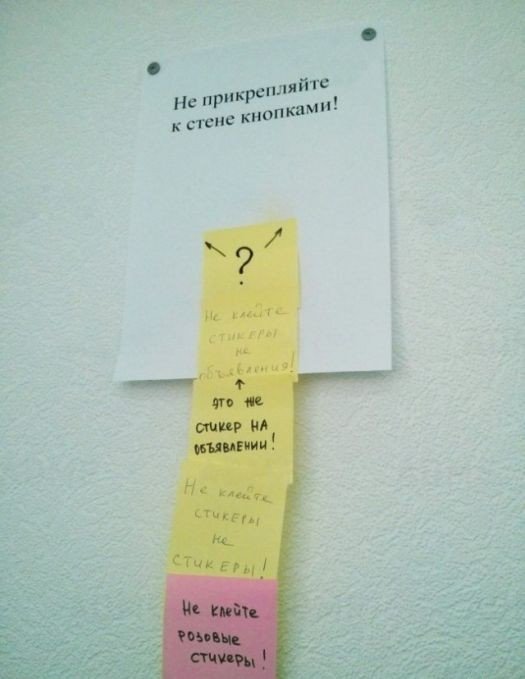 Не прикрепляйте
к стене кнопками!
?
Не клейте
стикеры
на
объявления!
это же
стикер на
объявлении!
Не клейте
стикеры
на
стикеры!
Не клейте
розовые
стикеры!